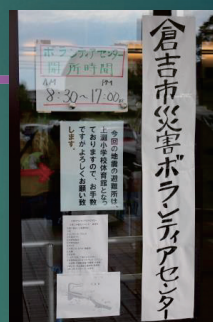 倉吉市災害ボランティアセンター
ボランティアセンター
開所時間
AM
PM
8:30~17:00
今回の地震の避難所は
上灘小学校体育館となっ
ておりますので、お手数
ですがよろしくお願い致
します。